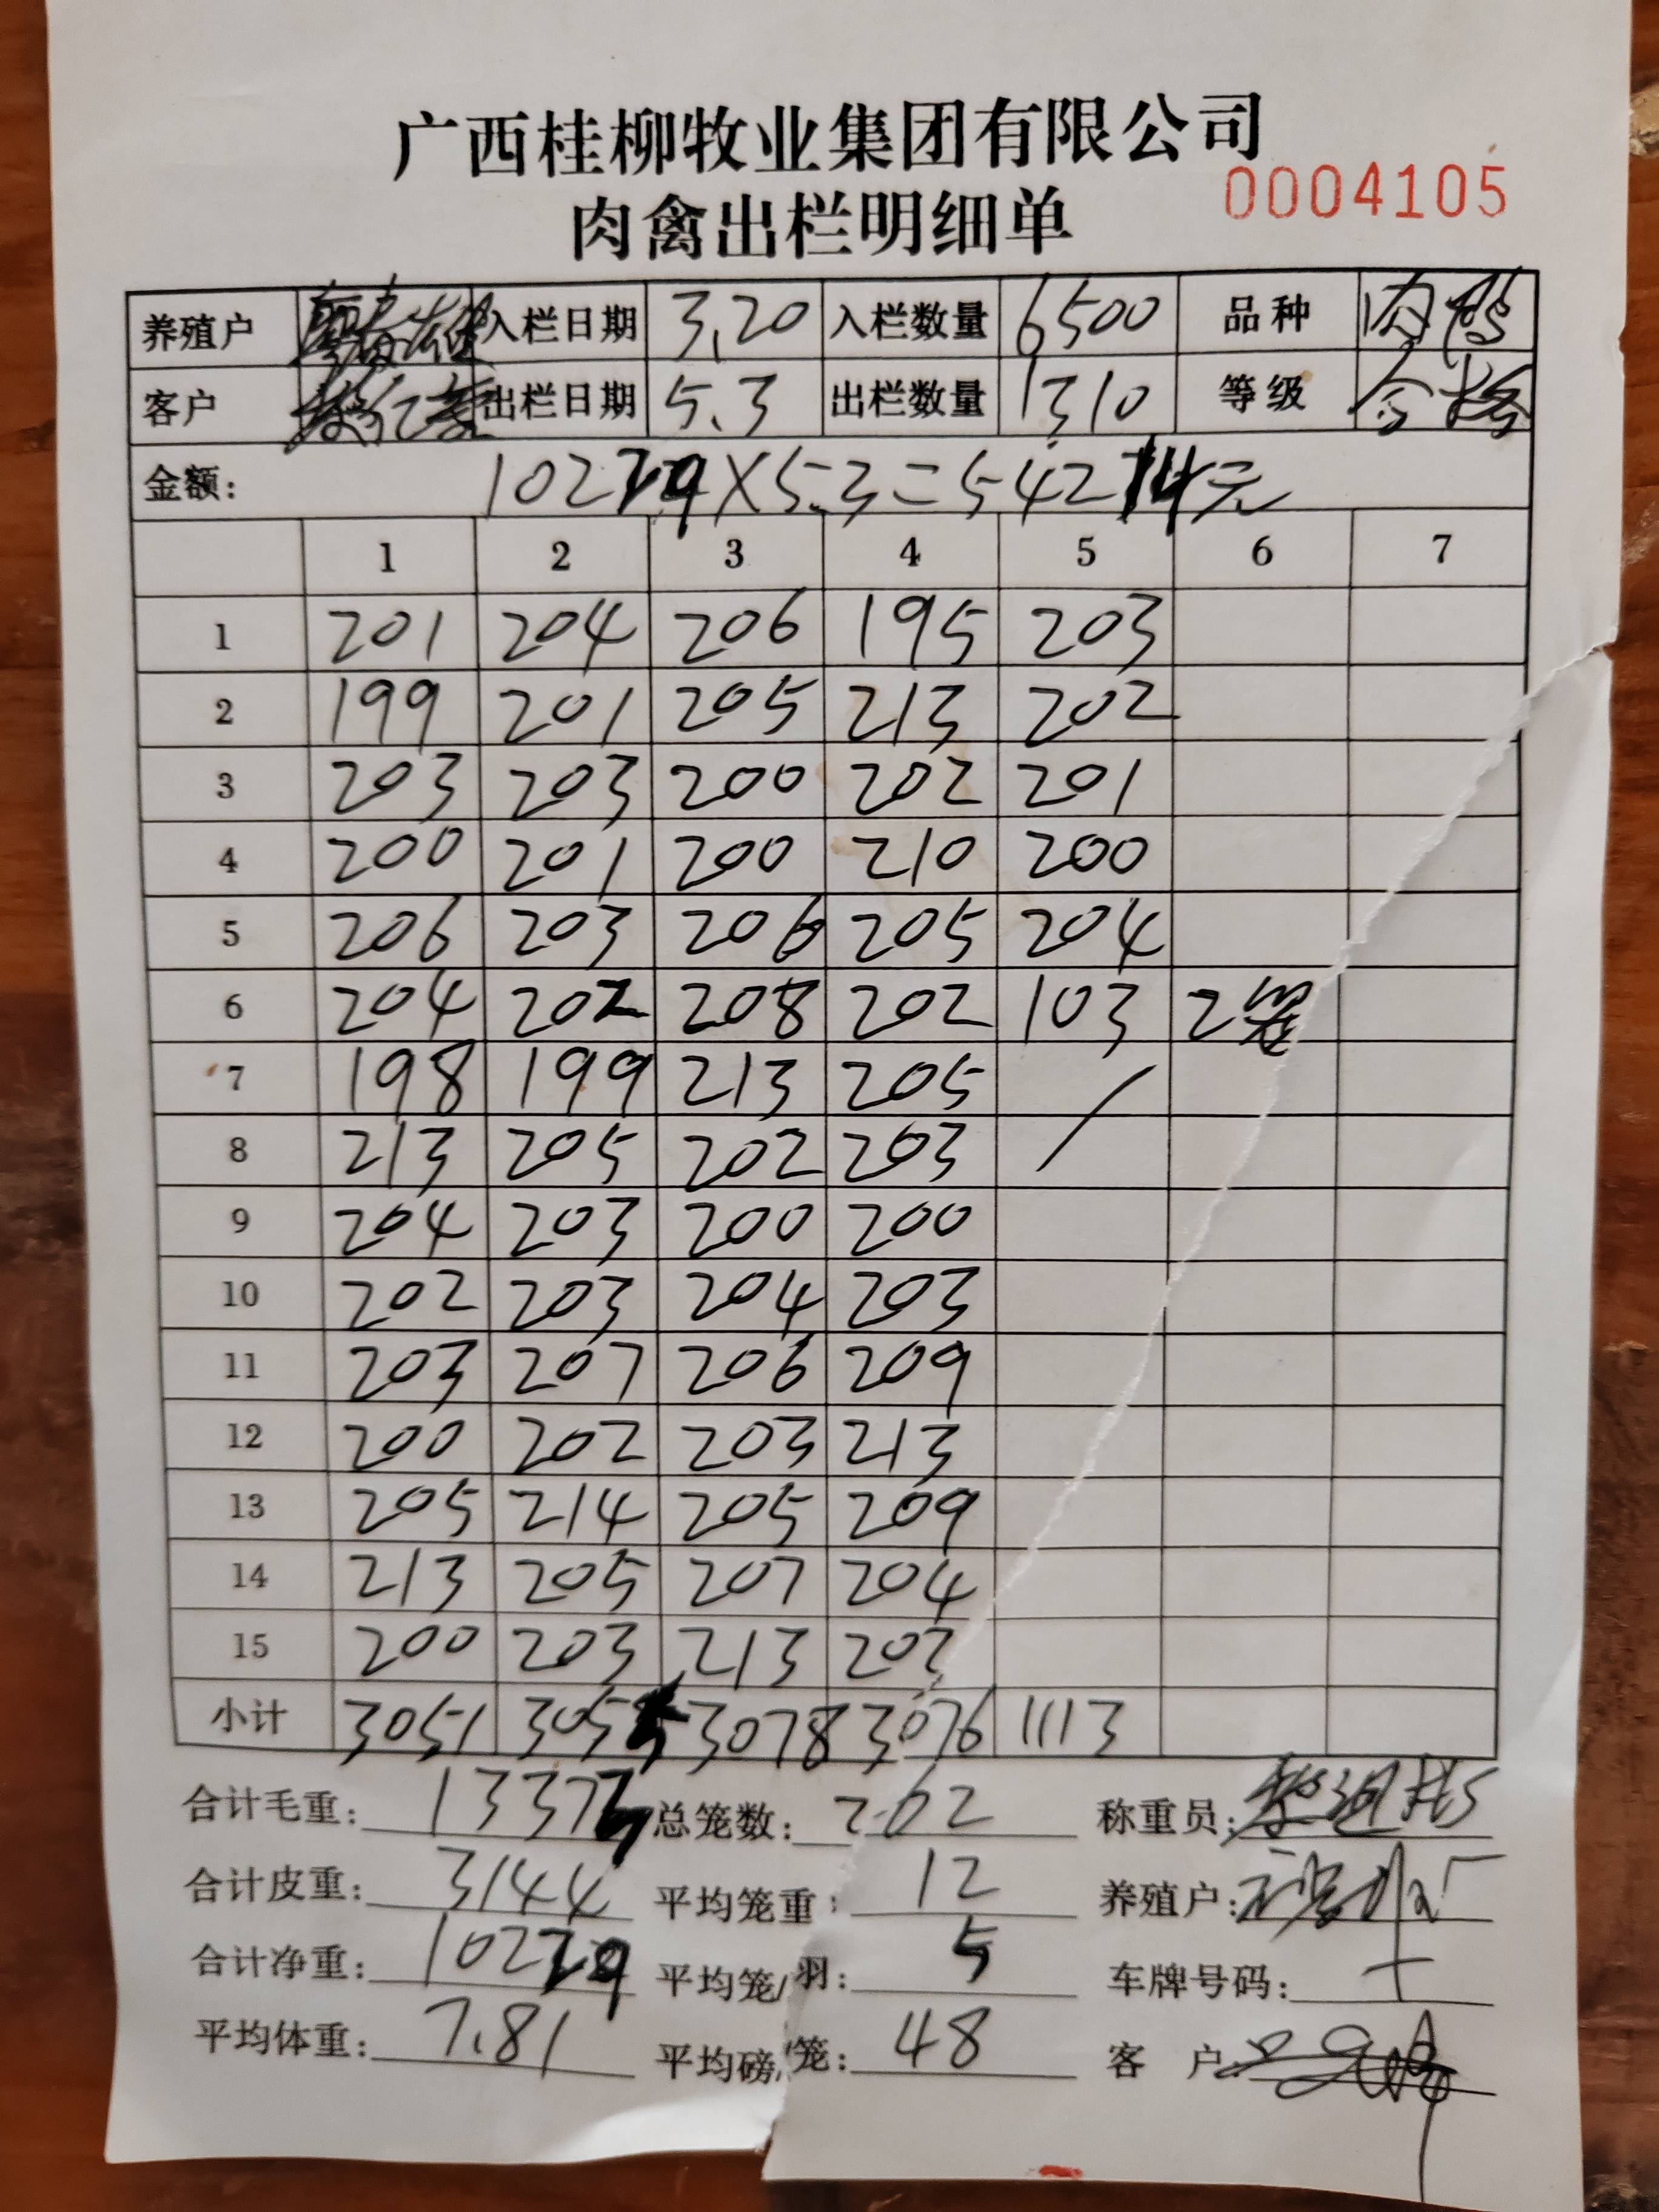 广西桂柳牧业集团有限公司
肉禽出栏明细单
0004105
养殖户 入栏日期 3.20 入栏数量 6500 品种 肉鸭
客户 出栏日期 5.3 出栏数量 1310 等级 合格
金额: 10229×5.3=54214元
1 2 3 4 5 6 7
1 201 204 206 195 203
2 199 201 205 213 202
3 203 203 200 202 201
4 200 201 200 210 200
5 206 203 206 205 204
6 204 202 208 202 103 2笼
7 198 199 213 205
8 213 205 202 203
9 204 203 200 200
10 202 203 204 203
11 203 207 206 209
12 200 202 203 213
13 205 214 205 209
14 213 205 207 204
15 200 203 213 203
小计 3051 3055 3078 3076 1113
合计毛重: 13373 总笼数: 262 称重员:
合计皮重: 3144 平均笼重: 12 养殖户:
合计净重: 10229 平均笼/羽: 5 车牌号码:
平均体重: 7.81 平均磅/笼: 48 客 户: